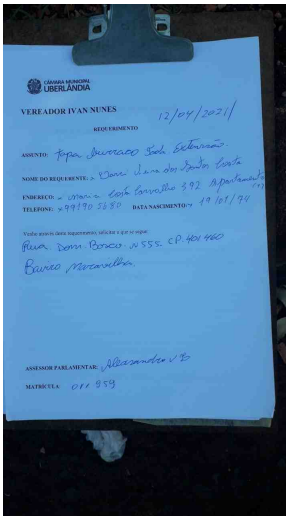 CÂMARA MUNICIPAL
UBERLÂNDIA
VEREADOR IVAN NUNES
12/04/2021
REQUERIMENTO
ASSUNTO: Tapa buraco Toda Extensão.
NOME DO REQUERENTE: Luna dos Santos Costa
ENDEREÇO: Maria Costa Carvalho 392 Apartamento
TELEFONE: 99190 5680 DATA NASCIMENTO: 19/01/94
Venho através deste requerimento, solicitar o que se segue:
Rua Dom Bosco N 555. CP. 401460
Bairro Maravilha.
ASSESSOR PARLAMENTAR: Alessandro
MATRÍCULA: 011 959